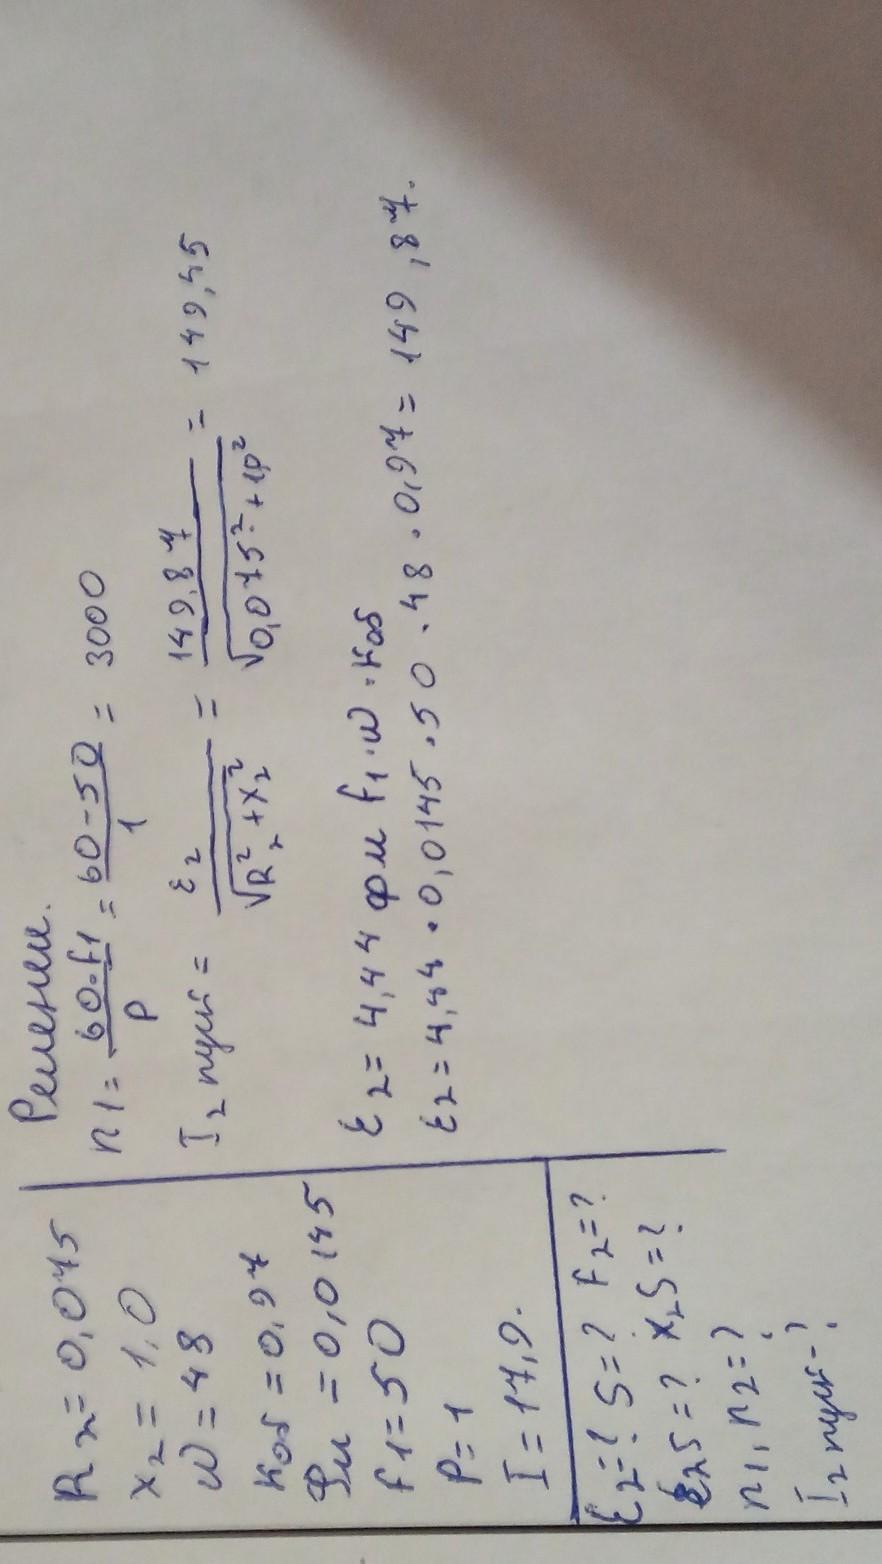 R2 = 0,075
x2 = 1,0
ω = 48
Kоб = 0,97
Фм = 0,0145
f1 = 50
P = 1
I = 17,9.
E2 = ? S = ? F2 = ?
E2S = ? x2S = ?
n1, n2 = ?
I2 пуск - ?
Решение.
n1 = 60·f1/P = 60-50/1 = 3000
I2 пуск = E2/√R2² + x2² = 149,87/√0,075² + 1,0² = 149,45
E2 = 4,44 Фм f1·ω·Kоб
E2 = 4,44·0,0145·50·48·0,97 = 149,87.